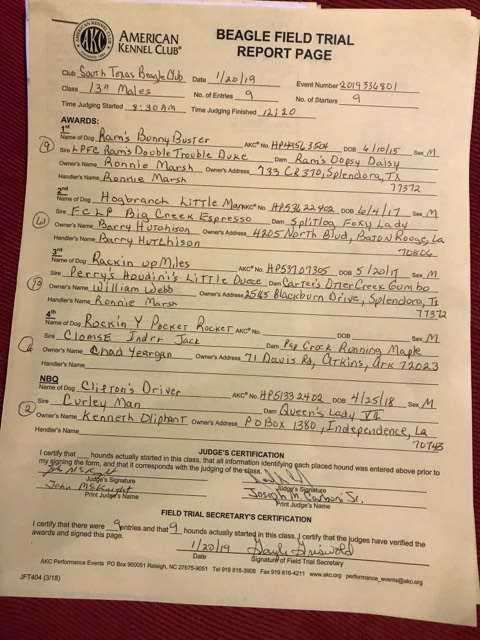 AMERICAN KENNEL CLUB
AKC
AMERICAN
KENNEL CLUB®
BEAGLE FIELD TRIAL
REPORT PAGE
Club South Texas Beagle Club Date 1/20/19 Event Number 2019336801
Class 13" Males No. of Entries 9 No. of Starters 9
Time Judging Started 8:30 AM Time Judging Finished 12:20
AWARDS:
1st
Name of Dog Ram's Bunny Buster AKC® No. DOB 6/10/15 Sex M
Sire LPFC Ram's Double Trouble Duke Dam Ram's Oopsy Daisy
Owner's Name Ronnie Marsh Owner's Address 733 CR 370, Splendora, Tx
Handler's Name Ronnie Marsh 77372
2nd
Name of Dog Hogbranch Little Man AKC® No. HP53622402 DOB 6/4/17 Sex M
Sire FCLP Big Creek Espresso Dam Splitlog Foxy Lady
Owner's Name Barry Hutchison Owner's Address 4205 North Blvd, Baton Rouge, La
Handler's Name Barry Hutchison 70806
3rd
Name of Dog Rackin up Miles AKC® No. HP53707305 DOB 5/2017 Sex M
Sire Perry's Houdini's Little Duece Dam Carter's Otter Creek Gumbo
Owner's Name William Webb Owner's Address 2565 Blackburn Drive, Splendora, Tx
Handler's Name Ronnie Marsh 77372
4th
Name of Dog Rockin Y Pocket Rocket AKC® No. DOB Sex M
Sire Clomse Indrr Jack Dam Pap Creek Running Maple
Owner's Name Chad Yeargan Owner's Address 71 Davis Rd, Atkins, Ark 72023
Handler's Name
NBQ
Name of Dog Clifton's Driver AKC® No. HP51332402 DOB 4/25/18 Sex M
Sire Curley Man Dam Queen's Lady VII
② Owner's Name Kenneth Oliphant Owner's Address P O Box 1380, Independence, La
Handler's Name 70443
JUDGE'S CERTIFICATION
I certify that hounds actually started in this class, that all information identifying each placed hound was entered above prior to
my signing the form, and that it corresponds with the judging of the class.
Judge's Signature Judge's Signature
John McKnight Joseph M. Carboni Sr.
Print Judge's Name Print Judge's Name
FIELD TRIAL SECRETARY'S CERTIFICATION
I certify that there were 9 entries and that 9 hounds actually started in this class. I certify that the judges have verified the
awards and signed this page.
1/20/19 Gayle Griswold
Date Signature of Field Trial Secretary
AKC Performance Events PO Box 900051 Raleigh, NC 27675-9051 Tel 919 816-3908 Fax 919 816-4211 www.akc.org performance_events@akc.org
JFT404 (3/18)